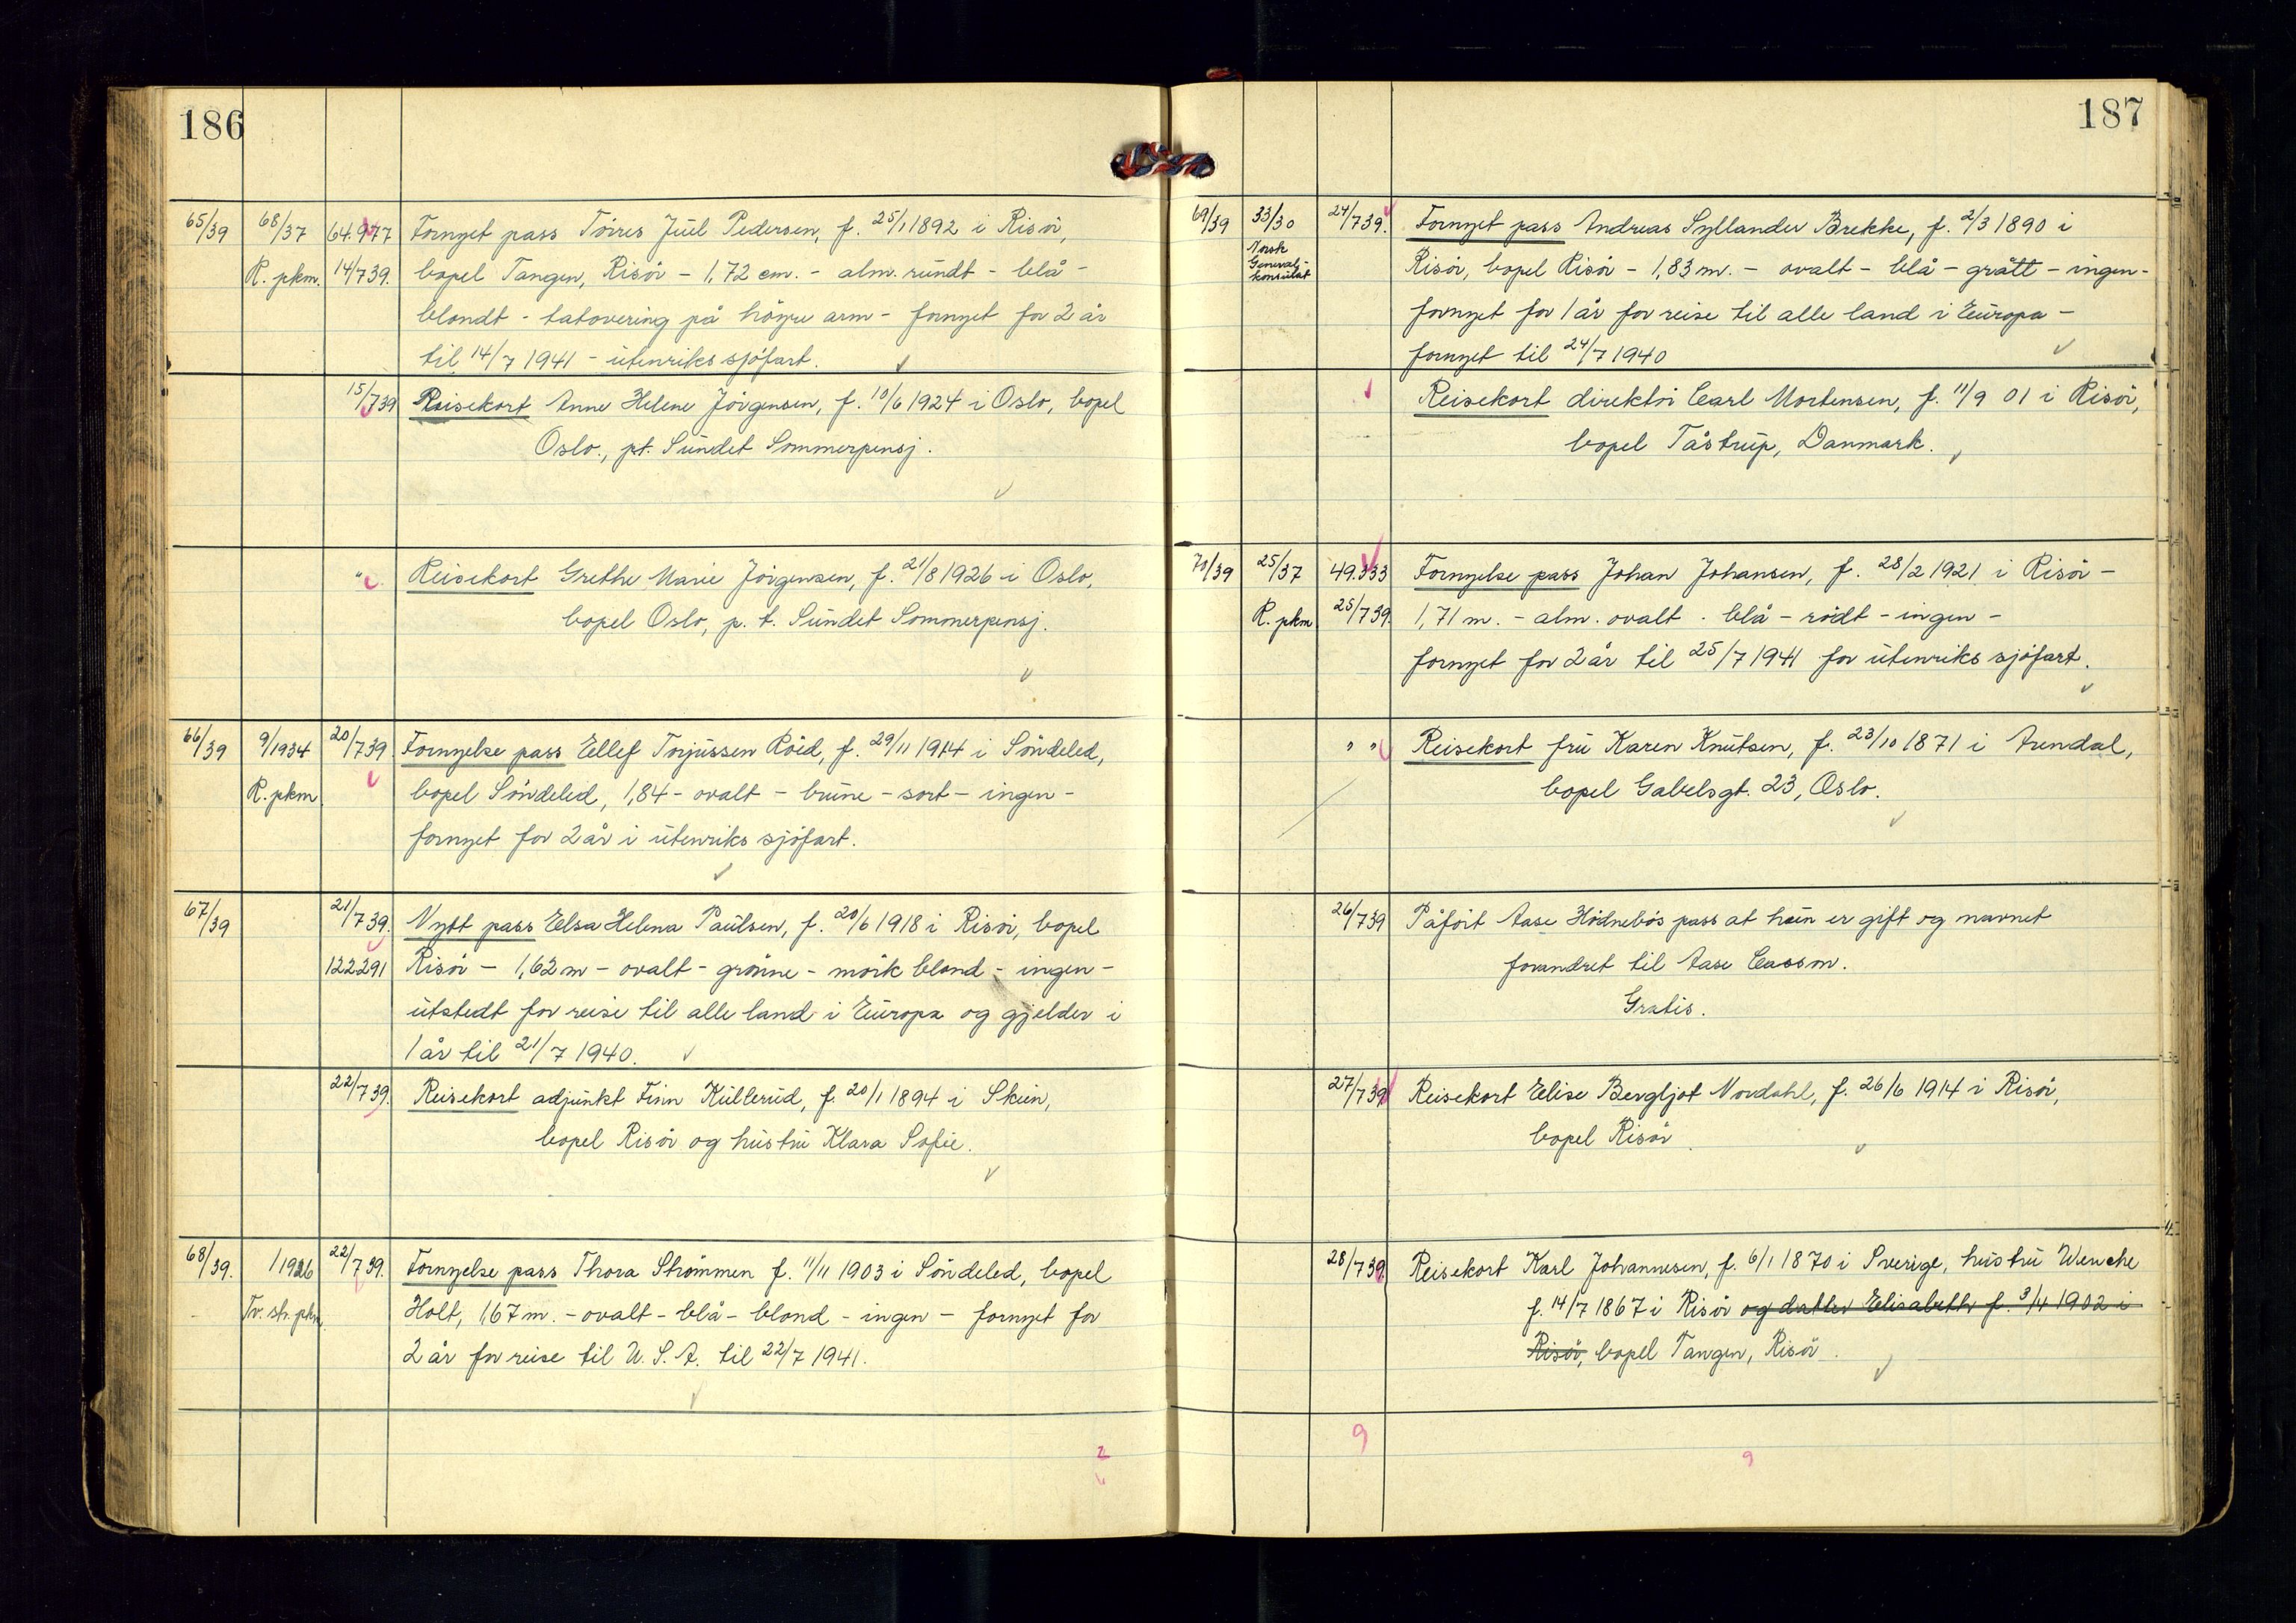 186
65/39 68/37 64.977 Fornyet pass Törres Juul Pedersen, f. 25/1 1892 i Risör,
R. pkm. 14/7 39. bopel Tangen, Risör - 1,72 cm. - alm. rundt - blå -
blondt - tatovering på höyre arm - fornyet for 2 år
til 14/7 1941 - utenriks sjöfart.
15/7 39 Reisekort Anne Helene Jörgensen, f. 10/6 1924 i Oslo, bopel
Oslo., pt. Sundet Sommerpensj.
" Reisekort Grethe Marie Jörgensen, f. 21/8 1926 i Oslo,
bopel Oslo, p. t. Sundet Sommerpensj.
66/39 9/1934 20/7 39 Fornyelse pass Ellef Torjussen Röed, f. 29/11 1914 i Söndeled,
R. pkm bopel Söndeled, 1,84 - ovalt - brune - sort - ingen -
fornyet for 2 år i utenriks sjöfart.
67/39 21/7 39. Nytt pass Elsa Helena Paulsen, f. 20/6 1918 i Risör, bopel
122291 Risör - 1,62 m - ovalt - grönne - mörk blond - ingen -
utstedt for reise til alle land i Europa og gjelder i
1 år til 21/7 1940.
22/7 39. Reisekort adjunkt Finn Kullerud, f. 20/1 1894 i Skien,
bopel Risör og hustru Klara Sofie.
68/39. 1/1926 22/7 39. Fornyelse pass Thora Strömmen f. 11/11 1903 i Söndeled, bopel
Tv. str. pkm. Holt, 1,67 m. - ovalt - blå - blond - ingen - fornyet for
2 år for reise til U. S. A. til 22/7 1941.
2
187
69/39 33/30 24/7 39. Fornyet pass Andreas Syllander Brekke, f. 2/3 1890 i
Norsk
General-
konsulat Risör, bopel Risör - 1,83 m. - ovalt - blå - grått - ingen -
fornyet for 1 år for reise til alle land i Europa -
fornyet til 24/7 1940
Reisekort direktör Carl Mortensen, f. 11/9 01 i Risör,
bopel Tåstrup, Danmark.
70/39 25/37 49.333 Fornyelse pass Johan Johansen, f. 28/2 1921 i Risör -
R. pkm 25/7 39. 1,71 m. - alm. ovalt - blå - rödt - ingen -
fornyet for 2 år til 25/7 1941 for utenriks sjöfart.
" " Reisekort fru Karen Knutsen, f. 23/10 1871 i Arendal,
bopel Gabelsgt. 23, Oslo.
26/7 39 Påfört Aase Hödnebös pass at hun er gift og navnet
forandret til Aase Casson.
Gratis.
27/7 39 Reisekort Elise Bergljot Nordahl, f. 26/6 1914 i Risör,
bopel Risör
28/7 39 Reisekort Karl Johannesen, f. 6/1 1870 i Sverige, hustru Wenche
f. 14/7 1867 i Risör og datter Elisabeth f. 3/4 1902 i
Risör, bopel Tangen, Risör.
9
9